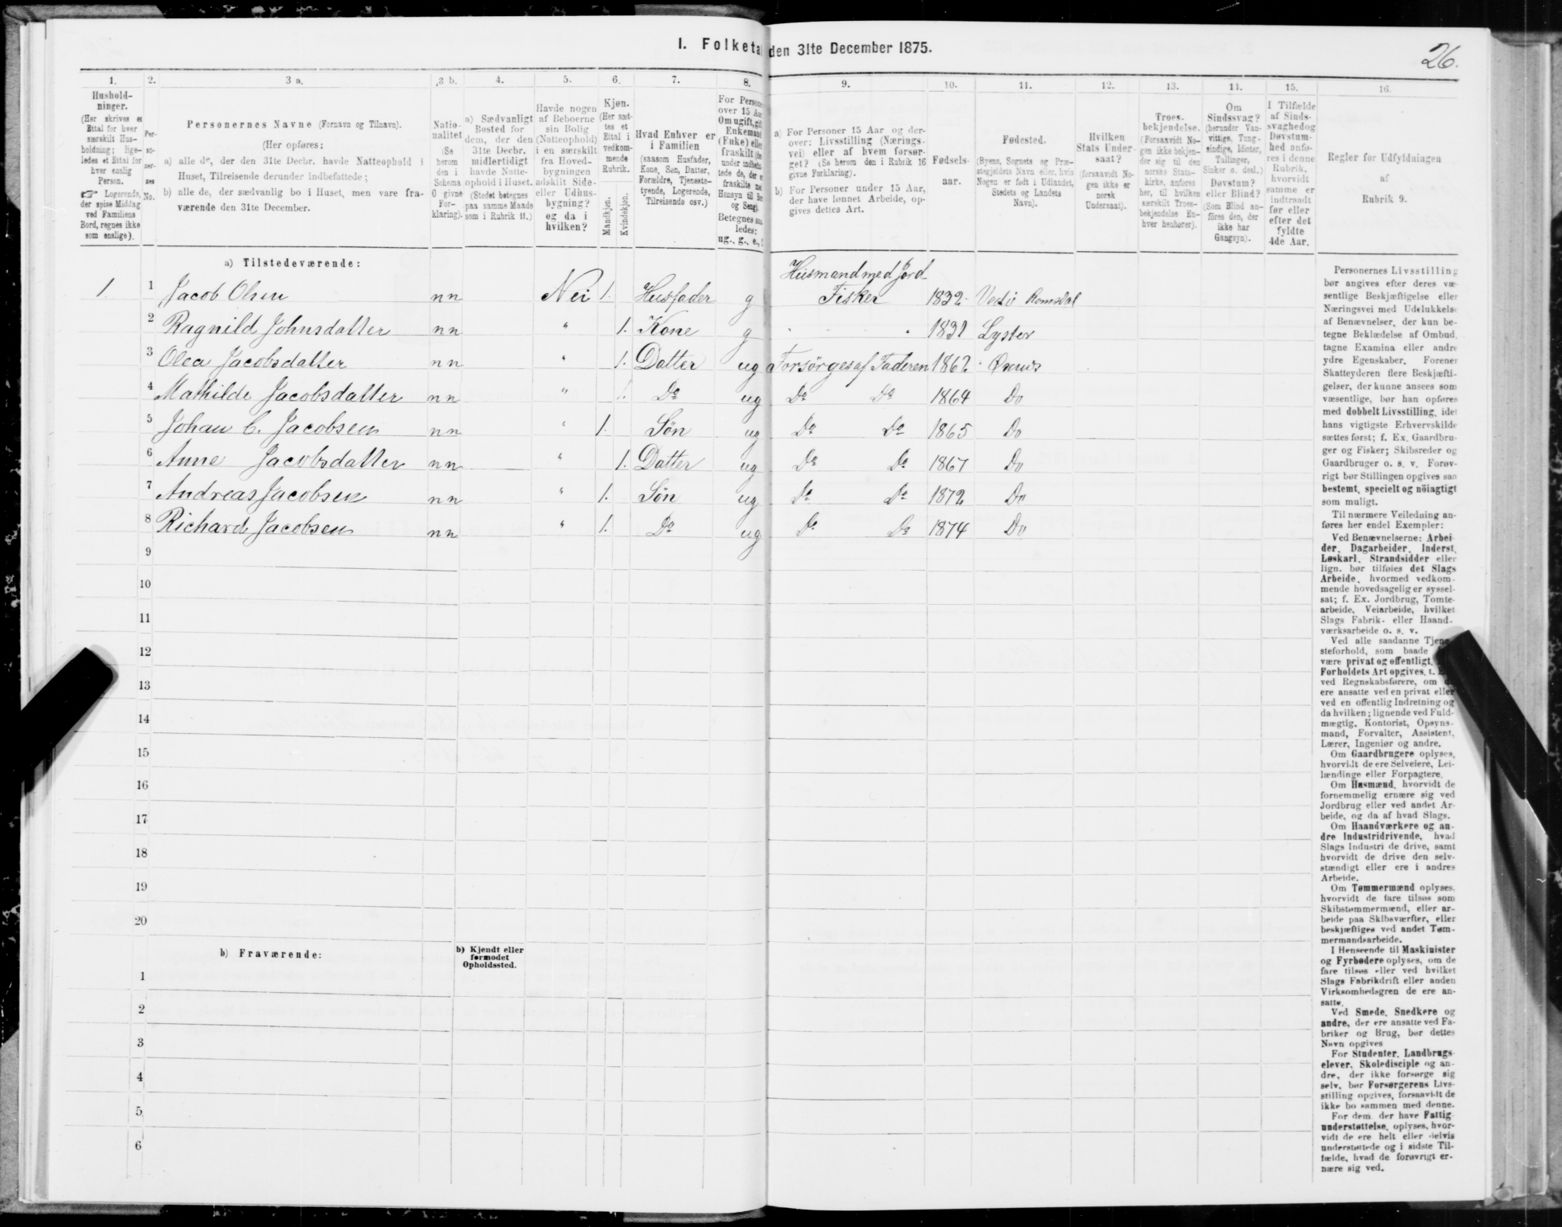 I. Folketal den 31te December 1875.
26.
1.
2.
3 a.
3 b.
4.
5.
6.
7.
8.
9.
10.
11.
12.
13.
14.
15.
16.
Hushold-
ninger.
(Her skrives et
Ettal for hver
særskilt Hus-
holdning; lige-
ledes et Ettal for
hver enslig
Person.
☞ Logerende,
der spise Middag
ved Familiens
Bord, regnes ikke
som enslige).
Per-
so-
ner-
nes
No.
Personernes Navne (Fornavn og Tilnavn).
(Her opføres;
a) alle de, der den 31te Decbr. havde Natteophold i
Huset, Tilreisende derunder indbefattede;
b) alle de, der sædvanlig bo i Huset, men vare fra-
værende den 31te December.
Natio-
nalitet
(Se
herom
den i
Schema
O givne
For-
klaring).
a) Sædvanligt
Bosted for
dem, der den
31te Decbr.
midlertidigt
havde Natte-
ophold i Huset.
(Stedet betegnes
paa samme Maade
som i Rubrik 11.)
Havde nogen
af Beboerne
sin Bolig
(Natteophold)
i en særskilt
fra Hoved-
bygningen
adskilt Side-
eller Udhus-
bygning?
og da i
hvilken?
Kjøn.
(Her sæt-
tes et
Ettal i
vedkom-
mende
Rubrik.
Mandkjøn.
Kvindekjøn.
Hvad Enhver er
i Familien
(saasom Husfader,
Kone, Søn, Datter,
Forældre, Tjeneste-
tyende, Logerende,
Tilreisende osv.)
For Persone
over 15 Aa
Om ugift, gif
Enkemand
(Enke) elle
fraskilt
Betegnes saa
ledes:
ug., g., e.,
a) For Personer 15 Aar og der-
over: Livsstilling (Nærings-
vei) eller af hvem forsør-
get? (Se herom den i Rubrik 16
givne Forklaring).
b) For Personer under 15 Aar,
der have lønnet Arbeide, op-
gives dettes Art.
Fødsels-
aar.
Fødested.
(Byens, Sognets og Præ-
stegjeldets Navn eller, hvis
Nogen er født i Udlandet,
Stedets og Landets
Navn).
Hvilken
Stats Under-
saat?
(forsaavidt No-
gen ikke er
norsk
Undersaat).
Troes-
bekjendelse.
(Forsaavidt No-
gen ikke bekjen-
der sig til den
norske Stats-
kirke, anføres
her, til hvilken
særskilt Troes-
bekjendelse En-
hver henhører).
Om
Sindssvag?
(herunder Van-
vittige, Tung-
sindige, Idioter,
Tullinger,
Sinker o. desl.)
Døvstum?
eller Blind?
(Som Blind an-
føres den, der
ikke har
Gangsyn).
I Tilfælde
af Sinds-
svaghed og
Døvstum-
hed anfø-
res i denne
Rubrik,
hvorvidt
samme er
indtraadt
før eller
efter det
fyldte
4de Aar.
Regler for Udfyldningen
af
Rubrik 9.
a) Tilstedeværende:
Husmand med Jord
1. 1 Jacob Olsen nn Nei 1. Husfader g Fisker 1832 Vedø Romsdal
2 Ragnild Johnsdatter nn " 1. Kone g 1831 Lyster
3 Olea Jacobsdatter nn " 1. Datter ug Forsørges af Faderen 1862
4 Mathilde Jacobsdatter nn " 1. Do ug Do Do 1864 Do
5 Johan C. Jacobsen nn " 1. Søn ug Do Do 1865 Do
6 Anne Jacobsdatter nn " 1. Datter ug Do Do 1867 Do
7 Andreas Jacobsen nn " 1. Søn ug Do Do 1872 Do
8 Richard Jacobsen nn " 1. Do ug Do Do 1874 Do
9
10
11
12
13
14
15
16
17
18
19
20
b) Fraværende:
b) Kjendt eller
formodet
Opholdssted.
1
2
3
4
5
6
Personernes Livsstilling
bør angives efter deres væ-
sentlige Beskjæftigelse eller
Næringsvei med Udelukkelse
af Benævnelser, der kun be-
tegne Beklædelse af Ombud,
tagne Examina eller andre
ydre Egenskaber. Forener
Skatteyderen flere Beskjæfti-
gelser, der kunne ansees som
væsentlige, bør han opføres
med dobbelt Livsstilling, idet
hans vigtigste Erhvervskilde
sættes først; f. Ex. Gaardbru-
ger og Fisker; Skibsreder og
Gaardbruger o. s. v. Forøv-
rigt bør Stillingen opgives saa
bestemt, specielt og nöiagtigt
som muligt.
Til nærmere Veiledning an-
føres her endel Exempler:
Ved Benævnelserne: Arbei-
der, Dagarbeider, Inderst,
Løskarl, Strandsidder eller
lign. bør tilføies det Slags
Arbeide, hvormed vedkom-
mende hovedsagelig er syssel-
sat; f. Ex. Jordbrug, Tomte-
arbeide, Veiarbeide, hvilket
Slags Fabrik- eller Haand-
værksarbeide o. s. v.
Ved alle saadanne Tjene-
steforhold, som baade
være privat og offentligt,
Forholdets Art opgives, t.
ved Regnskabsførere, om
ere ansatte ved en privat eller
ved en offentlig Indretning og
da hvilken; lignende ved Fuld-
mægtig, Kontorist, Opsyns-
mand, Forvalter, Assistent,
Lærer, Ingeniør og andre.
Om Gaardbrugere oplyses,
hvorvidt de ere Selveiere, Lei-
lændinge eller Forpagtere.
Om Husmænd, hvorvidt de
fornemmelig ernære sig ved
Jordbrug eller ved andet Ar-
beide, og da af hvad Slags.
Om Haandværkere og an-
dre Industridrivende, hvad
Slags Industri de drive, samt
hvorvidt de drive den selv-
stændigt eller ere i andres
Arbeide.
Om Tømmermænd oplyses,
hvorvidt de fare tilsøs som
Skibstømmermænd, eller ar-
beide paa Skibsværfter, eller
beskjæftiges ved andet Tøm-
mermandsarbeide.
I Henseende til Maskinister
og Fyrbødere oplyses, om de
fare tilsøs eller ved hvilket
Slags Fabrikdrift eller anden
Virksomhedsgren de ere an-
satte.
Ved Smede, Snedkere og
andre, der ere ansatte ved Fa-
briker og Brug, bør dettes
Navn opgives
For Studenter, Landbrugs-
elever, Skoledisciple og an-
dre, der ikke forsørge sig
selv, bør Forsørgerens Livs-
stilling opgives, forsaavidt de
ikke bo sammen med denne.
For dem der have Fattig-
understøttelse, oplyses, hvor-
vidt de ere helt eller delvis
understøttede og i sidste Til-
fælde, hvad de forøvrigt er-
nære sig ved.